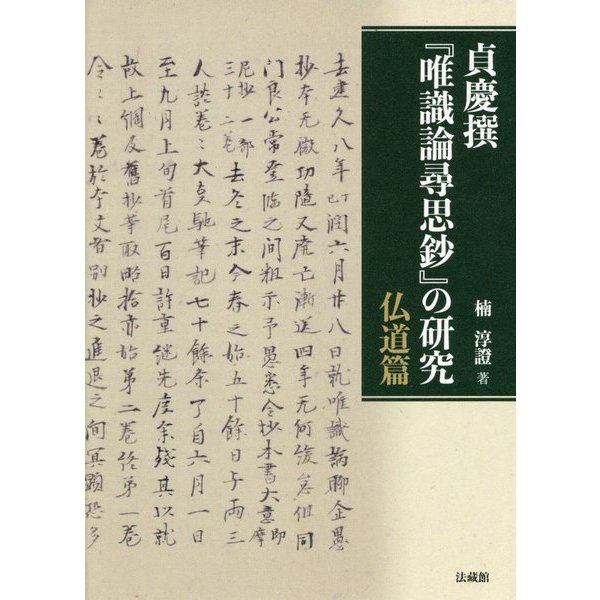 貞慶撰
『唯識論尋思鈔』の研究
仏道篇
楠 淳證 著
法藏館
去建久八年丁巳閏六月廿八日就唯識論聊企愚
抄本无微功隨又廃亡漸送四年无何後怠但同
門良公常登臨之间粗示予愚悉令抄本書大意即摩
尼抄一部三十二卷去冬之末今春之始五十餘日与両三
人談卷〻大旨馳筆記七十餘条了自六月一日
至九月上旬首尾百日許重継先虚余残其以就
故上綱及舊抄等取略拾亦始第二卷終第一卷
令〻卷於本文者別抄之進退之间冥顕恐多